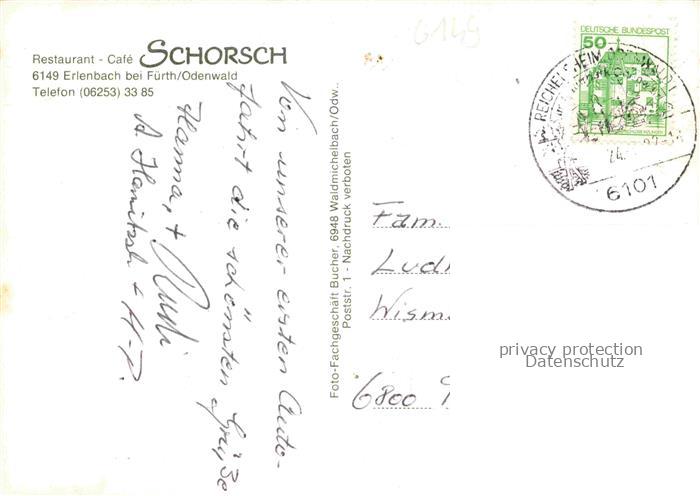 Restaurant - Café SCHORSCH
6149 Erlenbach bei Fürth/Odenwald
Telefon (06253) 33 85
6149
Von unserer ersten Auto-
fahrt die schönsten Grüße
Hanna, + Rudi
+ H-P.
Foto-Fachgeschäft Bucher, 6948 Waldmichelbach/Odw..
Poststr. 1 - Nachdruck verboten
DEUTSCHE BUNDESPOST
50
REICHELSHEIM
6101
Fam.
Lud
Wism
6800
privacy protection
Datenschutz